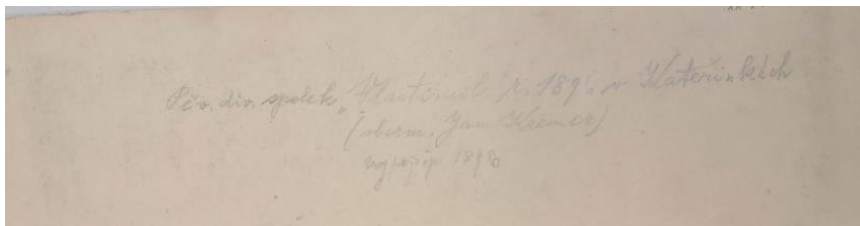 Pěv. div. spolek „Vlastimil" r. 1896 v Kateřinkách
(sborm. Jan Kremer)
1896